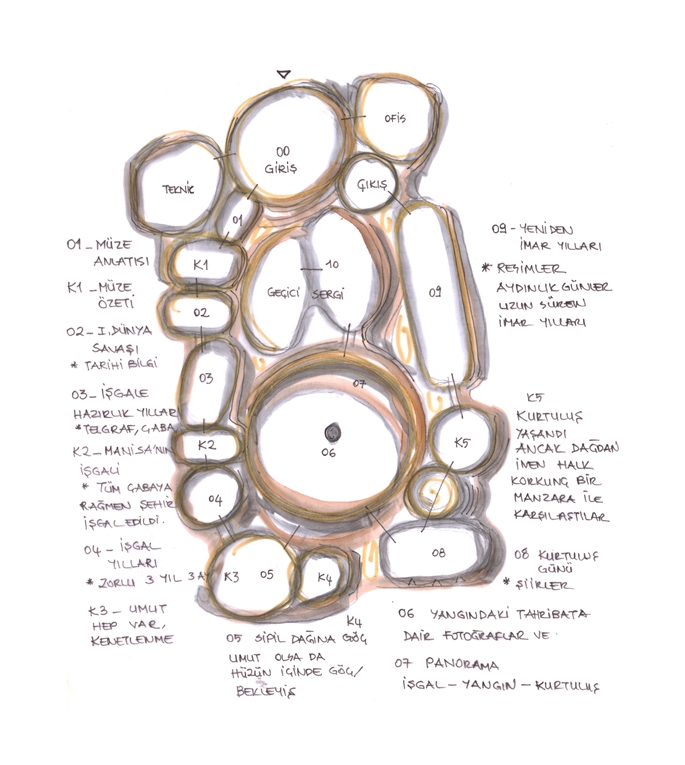 OFİS
00
GİRİŞ
TEKNİK
ÇIKIŞ
01
K1
10
GEÇİCİ SERGİ
09
02
03
07
06
K2
K5
04
08
K3
05
K4
01_MÜZE
ANLATISI
K1_MÜZE
ÖZETİ
02_I.DÜNYA
SAVAŞI
* TARİHİ BİLGİ
03_İŞGALE
HAZIRLIK YILLAR
* TELGRAF, ÇABA
K2_MANİSA'NIN
İŞGALİ
* TÜM ÇABAYA
RAĞMEN ŞEHİR
İŞGAL EDİLDİ.
04_İŞGAL
YILLARI
* ZORLU 3 YIL 3 AY
K3_UMUT
HEP VAR,
KENETLENME
K4
05 SİPİL DAĞINA GÖÇ
UMUT OLSA DA
HÜZÜN İÇİNDE GÖÇ/
BEKLEYİŞ
09-YENİDEN
İMAR YILLARI
* RESİMLER
AYDINLIK GÜNLER
UZUN SÜREN
İMAR YILLARI
K5
KURTULUŞ
YAŞANDI
ANCAK DAĞDAN
İNEN HALK
KORKUNÇ BİR
MANZARA İLE
KARŞILAŞTILAR
08 KURTULUŞ
GÜNÜ
* ŞİİRLER
06 YANGINDAKİ TAHRİBATA
DAİR FOTOĞRAFLAR VE
07 PANORAMA
İŞGAL-YANGIN-KURTULUŞ